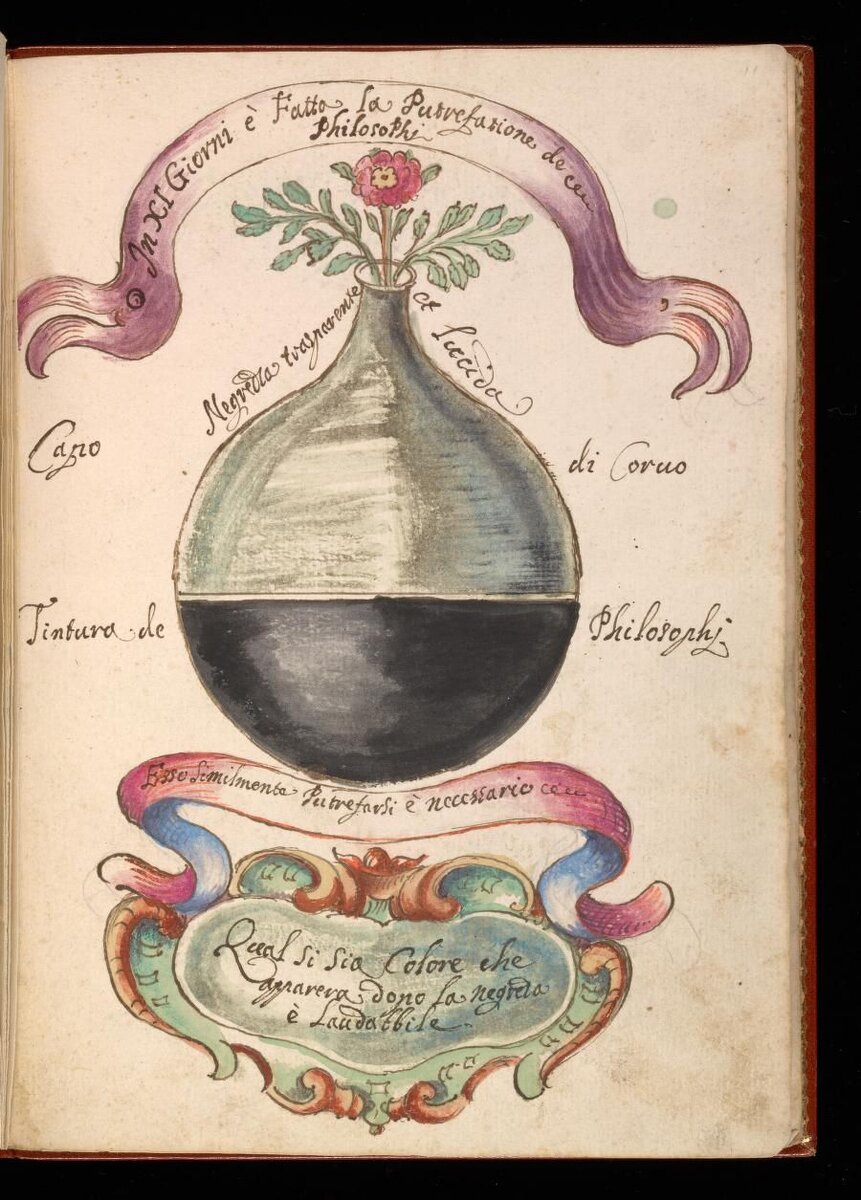 In XI Giorni è Fatto la Putrefatione de
Philosophi
Negredza trasparente et lucida
Capo di Coruo
Tintura de Philosophj
Esso Similmente Putrefarsi è necessario
Qual si sia Colore che
apparera dopo la negreda
è laudabbile